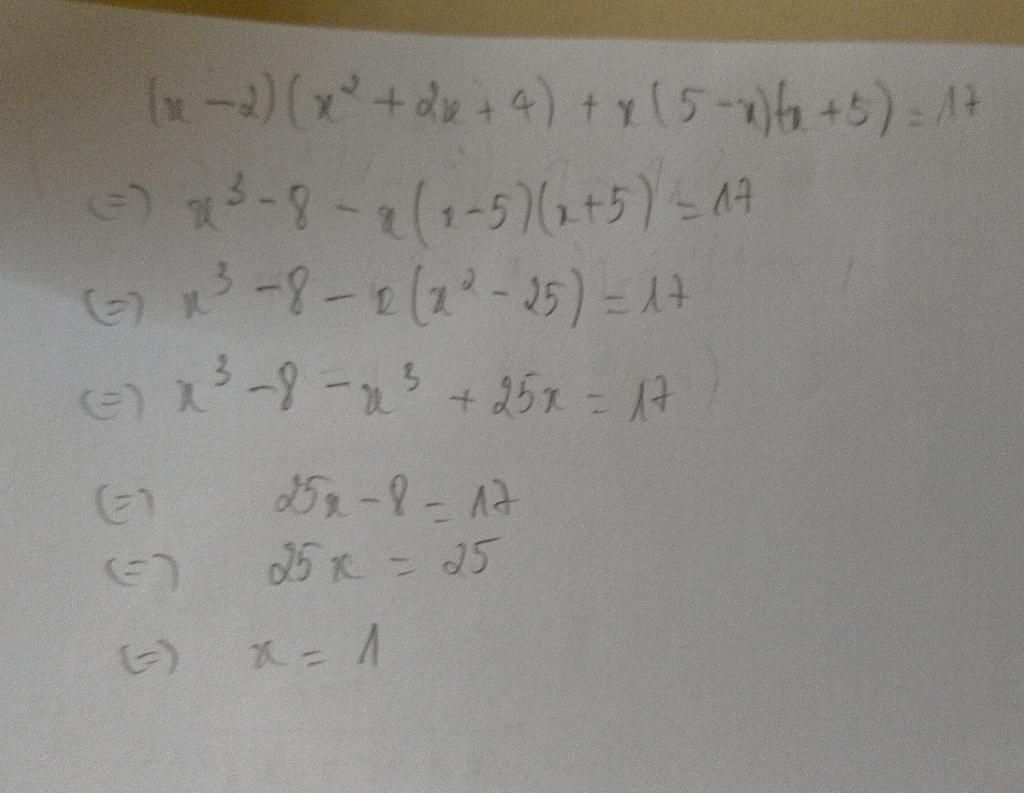 (x - 2)(x² + 2x + 4) + x(5 - x)(x + 5) = 17
(=) x³ - 8 - x(x - 5)(x + 5) = 17
(=) x³ - 8 - x(x² - 25) = 17
(=) x³ - 8 - x³ + 25x = 17
(=) 25x - 8 = 17
(=) 25x = 25
(=) x = 1